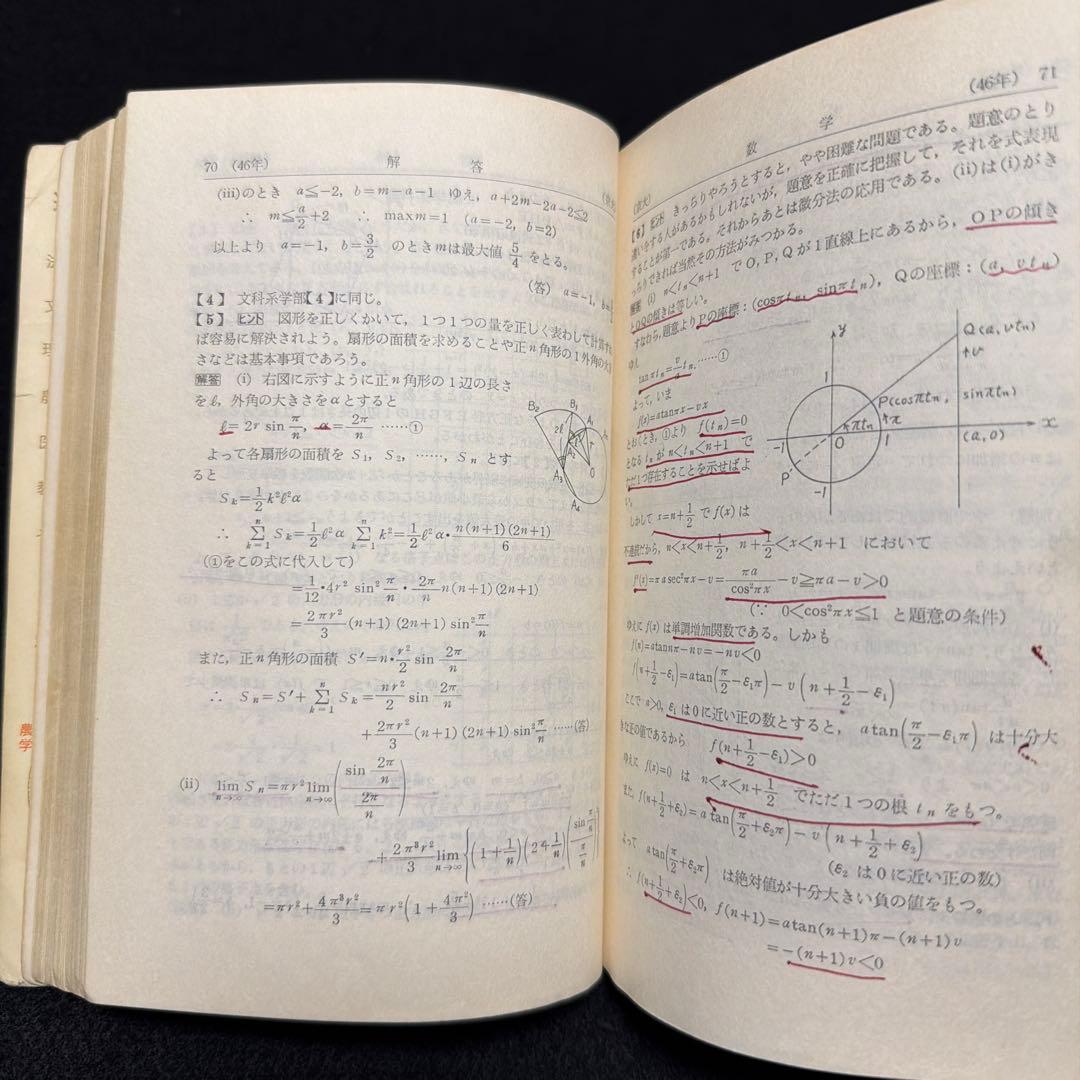 70 (46年) 解答
(iii)のとき a≦−2, b=m−a−1 ゆえ, a+2m−2a−2≦2
∴ m≦a/2+2 ∴ maxm=1 (a=−2, b=2)
以上より a=−1, b=3/2 のときmは最大値 5/4 をとる。
(答) a=−1, b=
【4】 文科系学部【4】に同じ。
【5】 ヒント 図形を正しくかいて, 1つ1つの量を正しく表わして計算すれ
ば容易に解決されよう。扇形の面積を求めることや正n角形の1外角の大
さなどは基本事項であろう。
解答 (i) 右図に示すように正n角形の1辺の長さ
をℓ, 外角の大きさをαとすると
ℓ=2r sin π/n, α=2π/n ……①
よって各扇形の面積を S₁, S₂, ……, Sₙ とす
ると
Sₖ=1/2 k²ℓ²α
∴ Σ[k=1→n] Sₖ=1/2 ℓ²α Σ[k=1→n] k²=1/2 ℓ²α・n(n+1)(2n+1)/6
(①をこの式に代入して)
=1/12・4r² sin² π/n・2π/n n(n+1)(2n+1)
=2πr²/3 (n+1)(2n+1)sin² π/n
また, 正n角形の面積 S′=n・r²/2 sin 2π/n
∴ Sₙ=S′+Σ[k=1→n] Sₖ=nr²/2 sin 2π/n
+2πr²/3 (n+1)(2n+1)sin² π/n ……(答)
(ii) lim[n→∞] Sₙ=πr² lim[n→∞] (sin 2π/n / 2π/n)
+2π³r²/3 lim[n→∞] {(1+1/n)(2+1/n)(sin π/n / π/n)
=πr²+4π³r²/3=πr²(1+4π²/3) ……(答)
B₂
B₁
A₁
2ℓ
ℓ
A₂
r
A₃
O
A₄
数学 (46年) 71
【6】 ヒント きっちりやろうとすると, やや困難な問題である。題意のとり
違いをする人があるかもしれないが, 題意を正確に把握して, それを式表現
することが第一である。それからあとは微分法の応用である。(ii)は(i)がき
っちりできれば当然その方法がみつかる。
解答 (i) n<tₙ<n+1 で O, P, Q が1直線上にあるから, OPの傾き
とOQの傾きは等しい。
すなわち, 題意より Pの座標:(cosπtₙ, sinπtₙ), Qの座標:(a, vtₙ)
ゆえ
tanπtₙ=v/a tₙ. ……①
よって, いま
f(x)=atanπx−vx
とおくとき, ①より f(tₙ)=0
となる tₙ が n<tₙ<n+1 で
ただ1つ存在することを示せばよ
い。
しかして x=n+1/2 で f(x) は
不連続だから, n<x<n+1/2, n+1/2<x<n+1 において
f′(x)=πasec²πx−v=πa/cos²πx−v≧πa−v>0
(∵ 0<cos²πx≦1 と題意の条件)
ゆえに f(x) は単調増加関数である。しかも
f(n)=atannπ−nv=−nv<0
f(n+1/2−ε₁)=atan(π/2−ε₁π)−v(n+1/2−ε₁)
ここで a>0, ε₁ は0に近い正の数とすると, atan(π/2−ε₁π) は十分大
きな正の値であるから f(n+1/2−ε₁)>0
ゆえに f(x)=0 は n<x<n+1/2 でただ1つの根 tₙ をもつ。
また, f(n+1/2+ε₂)=atan(π/2+ε₂π)−v(n+1/2+ε₂)
(ε₂ は0に近い正の数)
よって atan(π/2+ε₂π) は絶対値が十分大きい負の値をもつ。
∴ f(n+1/2+ε₂)<0, f(n+1)=atan(n+1)π−(n+1)v
=−(n+1)v<0
y
Q(a, vtₙ)
v
1
P(cosπtₙ, sinπtₙ)
π
πtₙ
O
1
(a, 0)
x
P
−1
農学